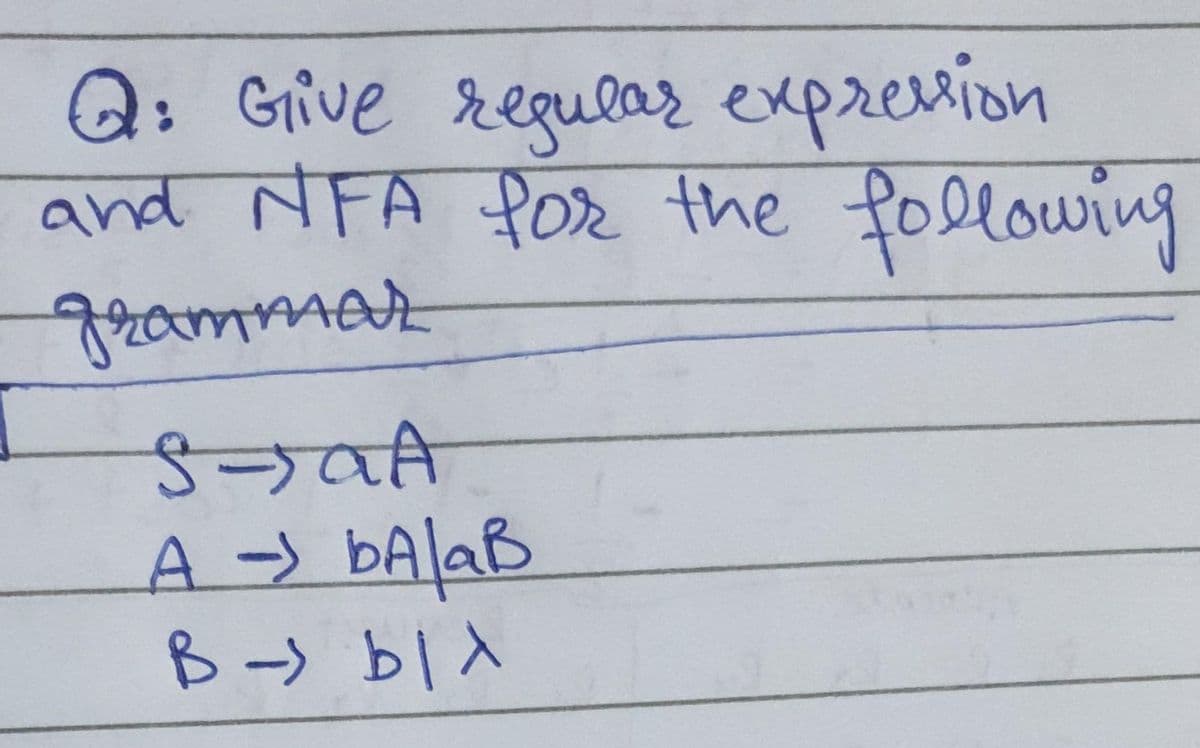 Q: Give regular expression
and NFA for the following
grammar
S → aA
A → bA|aB
B → b|λ